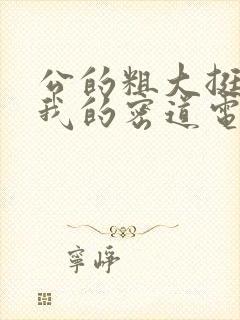 公的粗大挺
我的密道電
寧崢